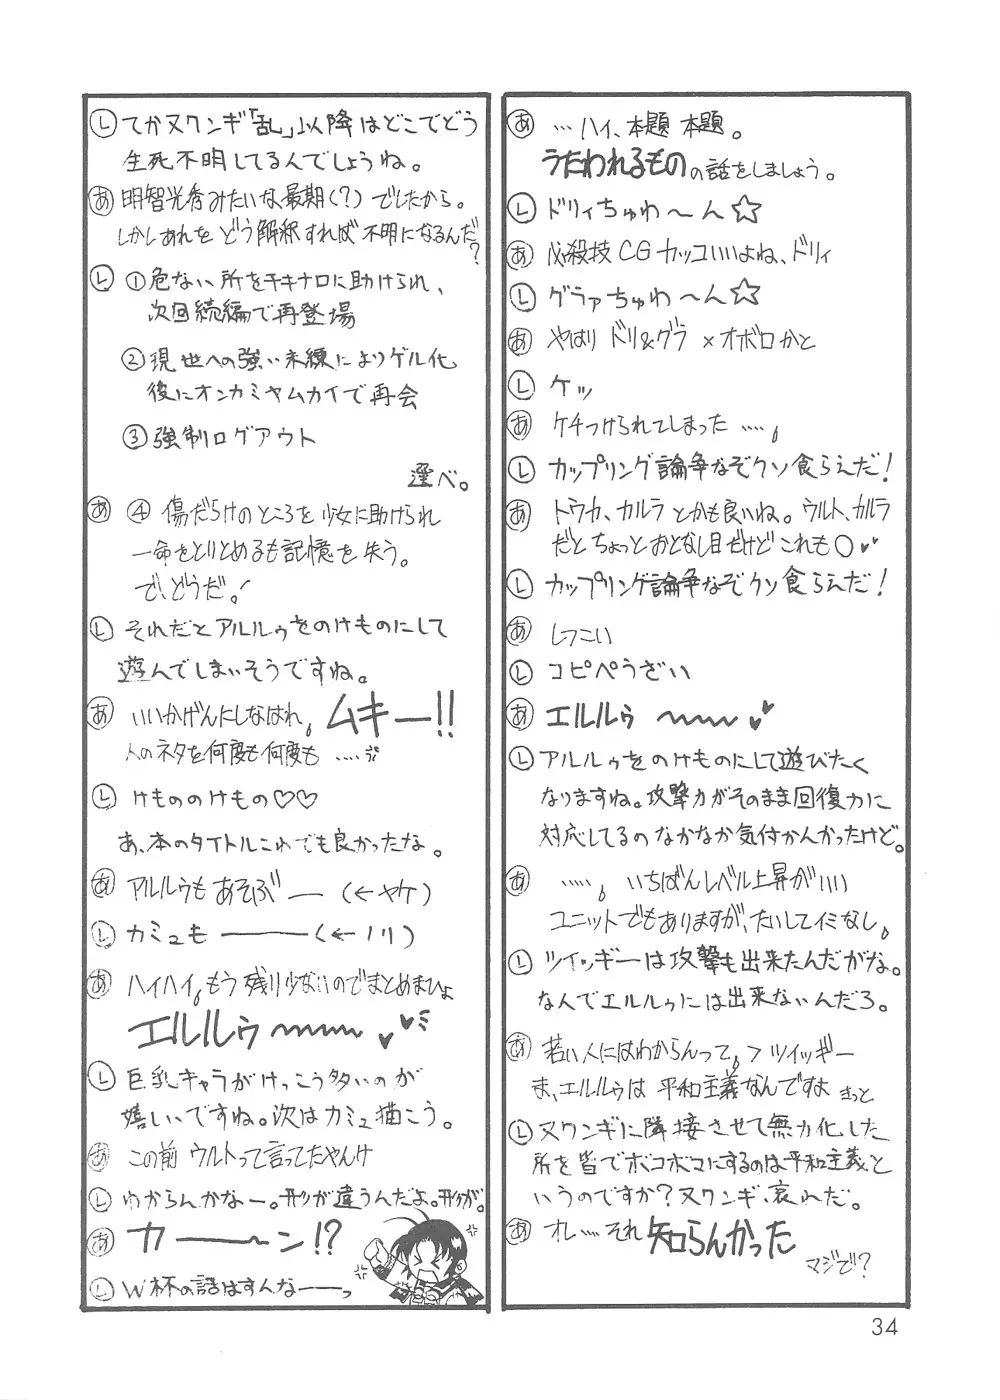 Ⓛ てかヌワンギ「乱」以降はどこでどう
生死不明してるんでしょうね。
あ 明智光秀みたいな最期(?)でしたから。
しかしあれをどう解釈すれば不明になるんだ?
Ⓛ ①危ない所をチキナロに助けられ、
次回続編で再登場
②現世への強い未練によりゲル化
後にオンカミヤムカイで再会
③強制ログアウト
選べ。
あ ④傷だらけのところを少女に助けられ
一命をとりとめるも記憶を失う。
で、どうだ!
Ⓛ それだとアルルゥをのけものにして
遊んでしまいそうですね。
あ いいかげんにしなはれ。ムキー!!
人のネタを何度も何度も……
Ⓛ けもののけもの♡♡
あ、本のタイトルこれでも良かったな。
あ アルルゥもあそぶ― (←ヤケ)
Ⓛ カミュも―――(←ノリ)
あ ハイハイ。もう残り少ないのでまとめまひょ
エルルゥ〜〜〜♥♥
Ⓛ 巨乳キャラがけっこう多いのが
嬉しいですね。次はカミュ描こう。
あ この前ウルトって言ってたやんけ
Ⓛ わからんかなー。形が違うんだよ。形が。
あ カ―――ン!?
Ⓛ W杯の話はすんなーーっ
あ …ハイ、本題本題。
うたわれるものの話をしましょう。
Ⓛ ドリィちゅわ〜ん☆
あ 必殺技CGカッコいいよね、ドリィ
Ⓛ グラァちゅわ〜ん☆
あ やはりドリ&グラ×オボロかと
Ⓛ ケッ
あ ケチつけられてしまった……。
Ⓛ カップリング論争なぞクソ食らえだ!
あ トウカ、カルラとかも良いね。ウルト、カルラ
だとちょっとおとなし目だけどこれも○♥♥
Ⓛ カップリング論争なぞクソ食らえだ!
あ しつこい
Ⓛ コピペうざい
あ エルルゥ 〜〜〜♥♥
Ⓛ アルルゥをのけものにして遊びたく
なりますね。攻撃力がそのまま回復力に
対応してるのなかなか気付かんかったけど。
あ ……。いちばんレベル上昇がいい
ユニットでもありますが、たいしてイミなし。
Ⓛ ツイッギーは攻撃も出来たんだがな。
なんでエルルゥには出来ないんだろ。
あ 若い人にはわからんって。>ツイッギー
ま、エルルゥは平和主義なんですよ きっと
Ⓛ ヌワンギに隣接させて無力化した
所を皆でボコボコにするのは平和主義と
いうのですか?ヌワンギ、哀れだ。
あ オレ…それ知らんかった
マジで?
34